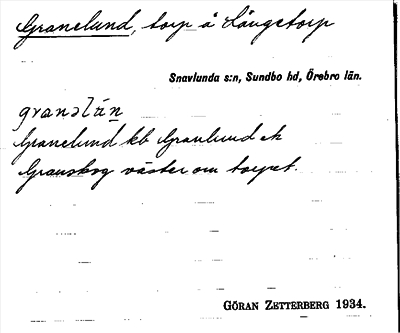 Granelund, torp å Långetorp
Snavlunda s:n, Sundbo hd, Örebro län.
granəlún
Granelund kb Granlund ek
Granskog väster om torpet.
GÖRAN ZETTERBERG 1934.